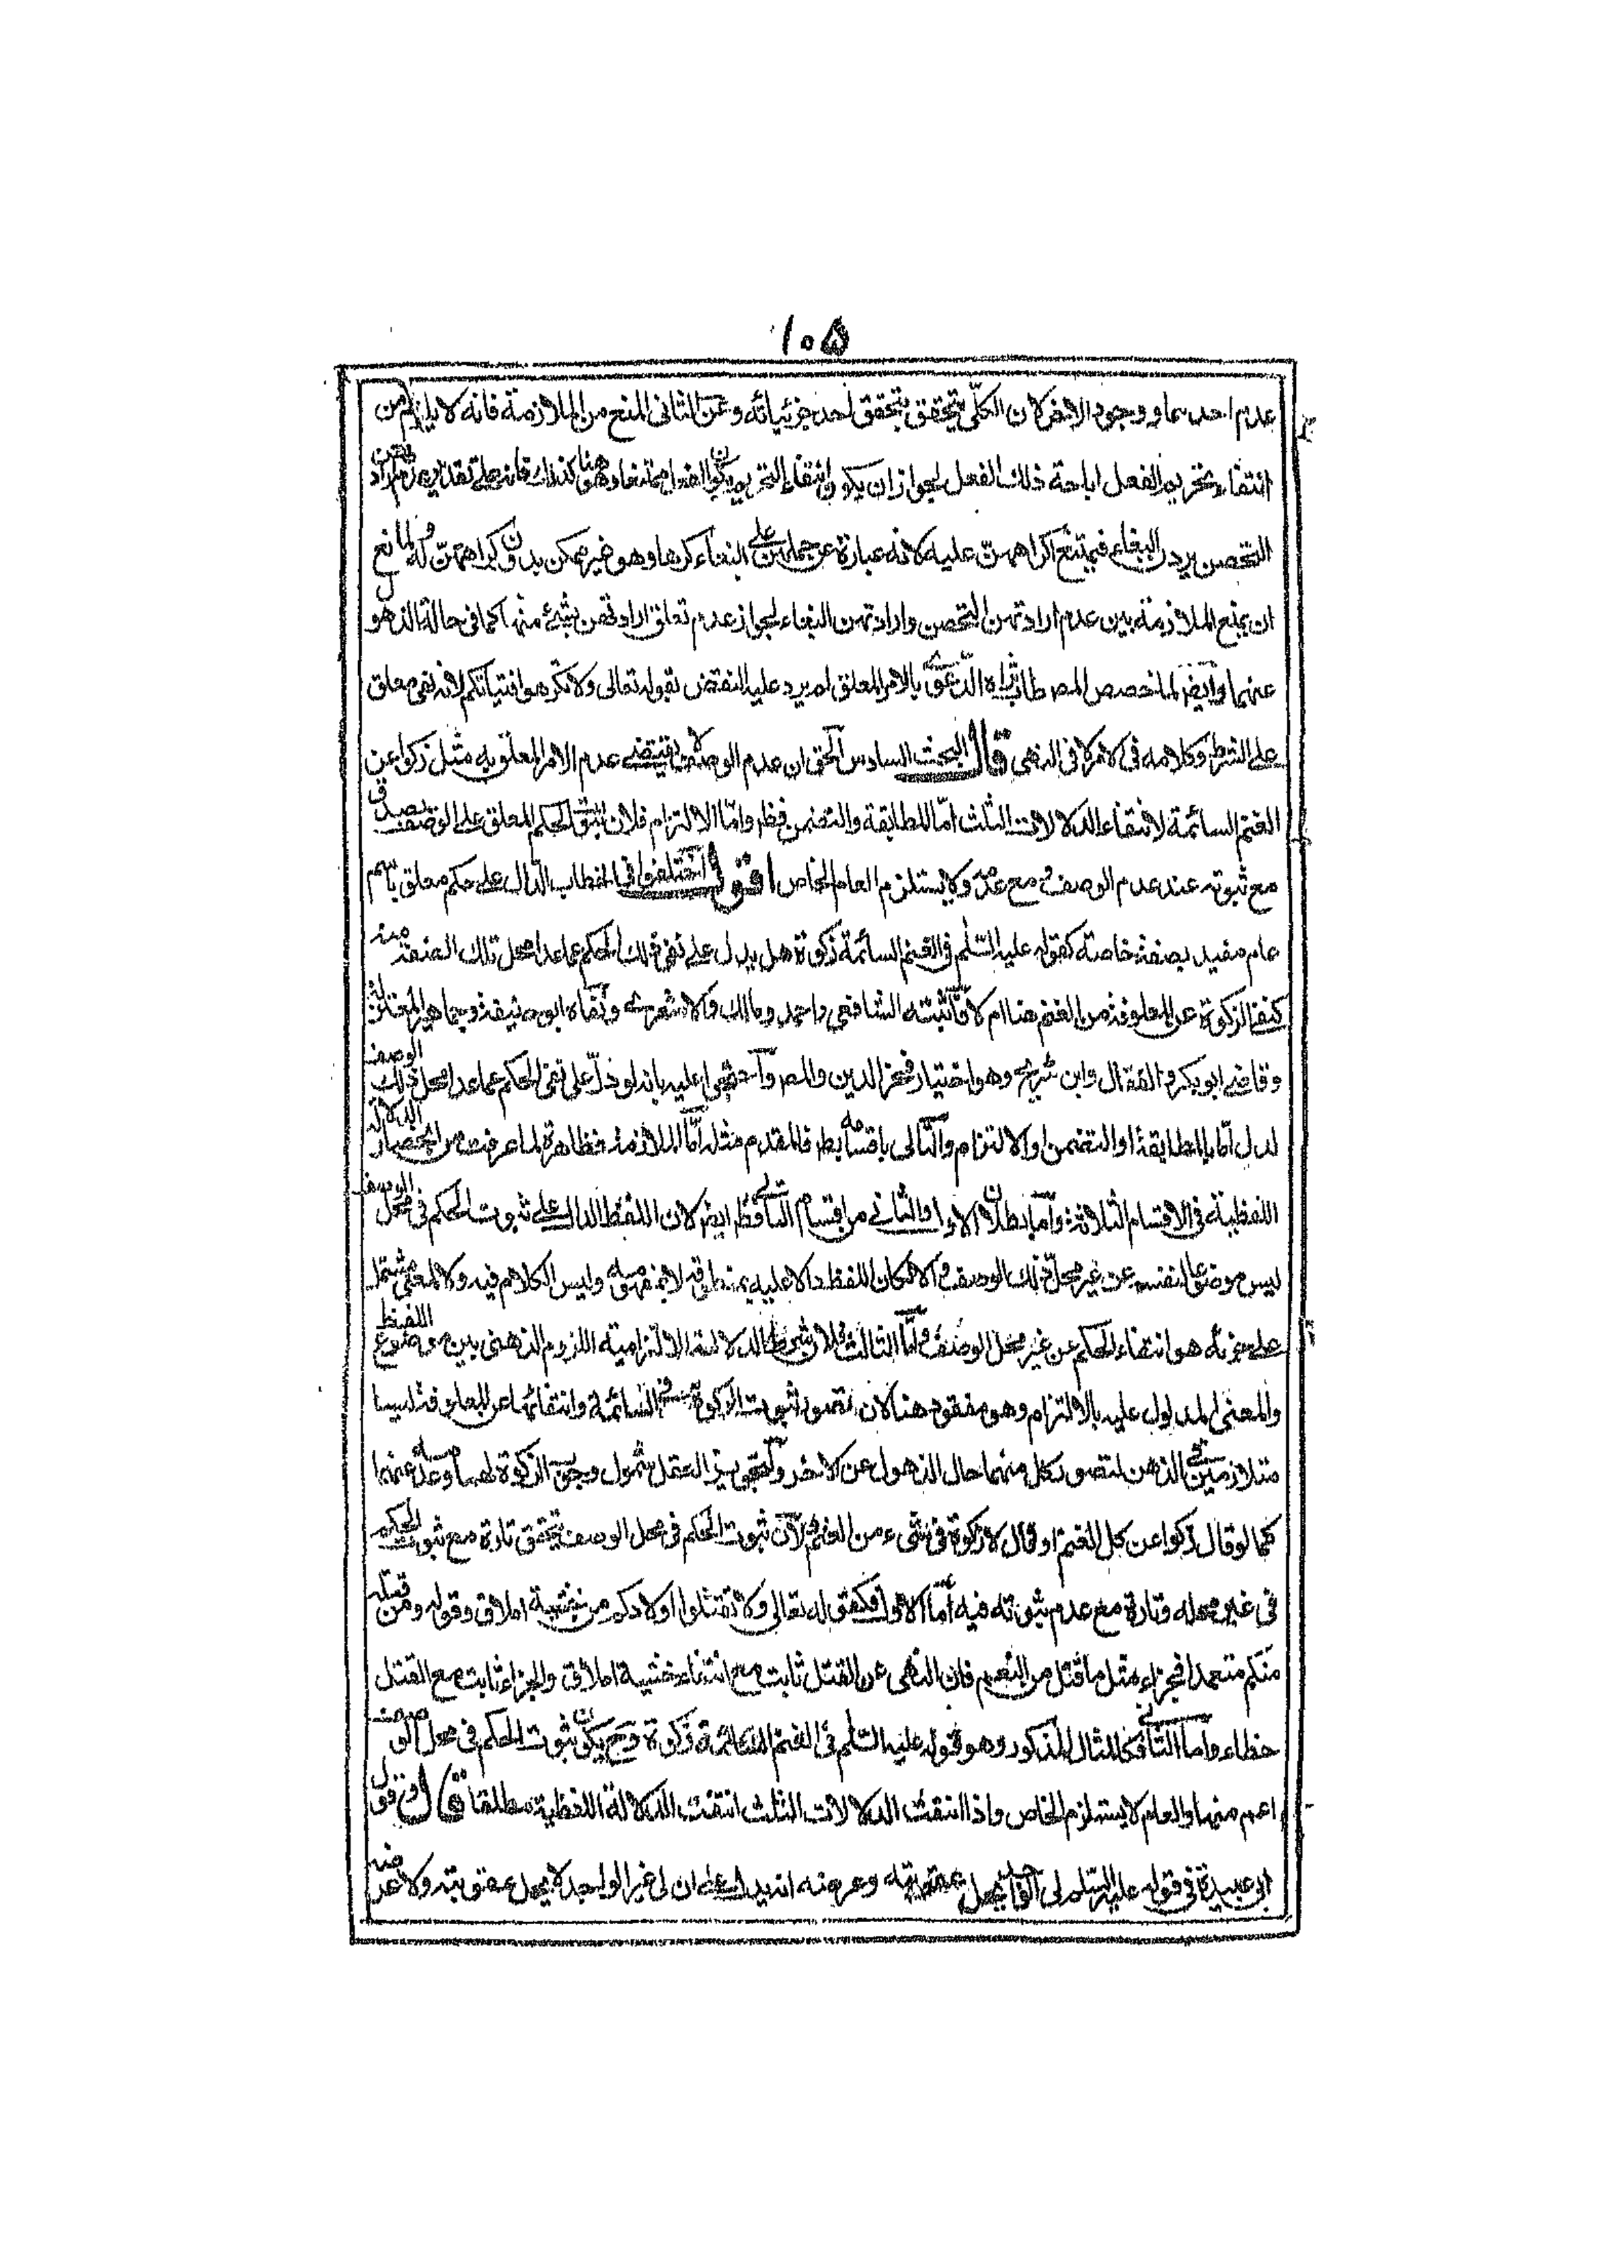 ١٠۵
عدم احدهما ووجود الاخر لان الكلّي يتحقق بتحقق احد جزئياته وعن الثاني المنع من الملازمة فانه لا يلزم من
انتفاء تحريم الفعل اباحة ذلك الفعل لجواز ان يكون انتفاء التحريم لكون الفعل ممتنعا وهنا كذلك فانه على تقدير عدم ارادتهن
التحصن يردن البغاء فيمتنع اكراههنّ عليه لانه عبارة عن حملهن على البغاء كرها وهو غير ممكن بدون كراهتهنّ له ولمانع
ان يمنع الملازمة بين عدم ارادتهن التحصن وارادتهن البغاء لجواز عدم تعلق ارادتهن بشئ منهما كما في حالة الذهول
عنهما وايضا لما خصص المصـ طاب ثراه الدعوى بالامر المعلق لم يرد عليه النقض بقوله تعالى ولا تكرهوا فتياتكم لانه نهى معلق
على الشرط وكلامه في الامر لا في النهي قال البحث السادس الحق ان عدم الوصف لا يقتضي عدم الامر المعلق به مثل زكوا عن
الغنم السائمة لانتفاء الدلالات الثلث امّا المطابقة والتضمن فظ وامّا الالتزام فلان ثبوت الحكم المعلق على الوصف يصدق
مع ثبوته عند عدم الوصف ومع عدمه ولا يستلزم العام الخاص اقول اختلفوا في الخطاب الدال على حكم معلق باسم
عام مقيد بصفة خاصة كقوله عليه السّلم في الغنم السائمة زكوة هل يدل على نفي ذلك الحكم عما عدا محل تلك الصفة منه
كنفي الزكوة عن المعلوفة من الغنم هنا ام لا فاثبته الشافعي واحمد ومالك والاشعري ونفاه ابوحنيفة وجماهير المعتزلة
وقاضي ابوبكر والقفال وابن شريح وهو اختيار فخر الدين والمصـ واحتجوا عليه بانه لو دلّ على نفي الحكم عما عدا محل ذلك الوصف
لدل امّا بالمطابقة او التضمن او الالتزام والتالي باقسامه بط فالمقدم مثله امّا الملازمة فظاهرة لما عرفت من انحصار الدلالة
اللفظية في الاقسام الثلاثة وامّا بطلان الاول والثاني من اقسام التالي فظ ايضا لان اللفظ الدال على ثبوت الحكم في محل الوصف
ليس موضوعا لنفيه عن غير محل ذلك الوصف والا لكان اللفظ دالا عليه بمنطوقه لا بمفهومه وليس الكلام فيه ولا لمعنى مشتمل
على جزئه هو انتفاء الحكم عن غير محل الوصف وامّا الثالث فلان شرط الدلالة الالتزامية اللزوم الذهني بين موضوع اللفظ
والمعنى المدلول عليه بالالتزام وهو مفقود هنا لان تصور ثبوت الزكوة في السائمة وانتفائها عن المعلوفة ليسا
متلازمين في الذهن لتصور كل منهما حال الذهول عن الاخر ولتجويز العقل شمول وجوب الزكوة لهما وعدمه عنهما
كما لو قال زكوا عن كل الغنم او قال لا زكوة في شيء من الغنم ولان ثبوت الحكم في محل الوصف يتحقق تارة مع ثبوت الحكم
في غير محله وتارة مع عدم ثبوته فيه امّا الاول فكقوله تعالى ولا تقتلوا اولادكم من خشية املاق وقوله ومن قتله
منكم متعمدا فجزاء مثل ما قتل من النعم فان النهي عن القتل ثابت مع انتفاء خشية املاق والجزاء ثابت مع القتل
خطاء وامّا الثاني فكالمثال المذكور وهو قوله عليه السّلم في الغنم السائمة زكوة وح يكون ثبوت الحكم في محل الوصف
اعم منهما والعام لا يستلزم الخاص واذا انتفت الدلالات الثلث انتفت الدلالة اللفظية مطلقا قال وقول
ابي عبيدة في قوله عليه السّلم لي الواجد يحل عقوبته وعرضه انه يدل على ان لي غير الواجد لا يحل عقوبته ولا عرضه